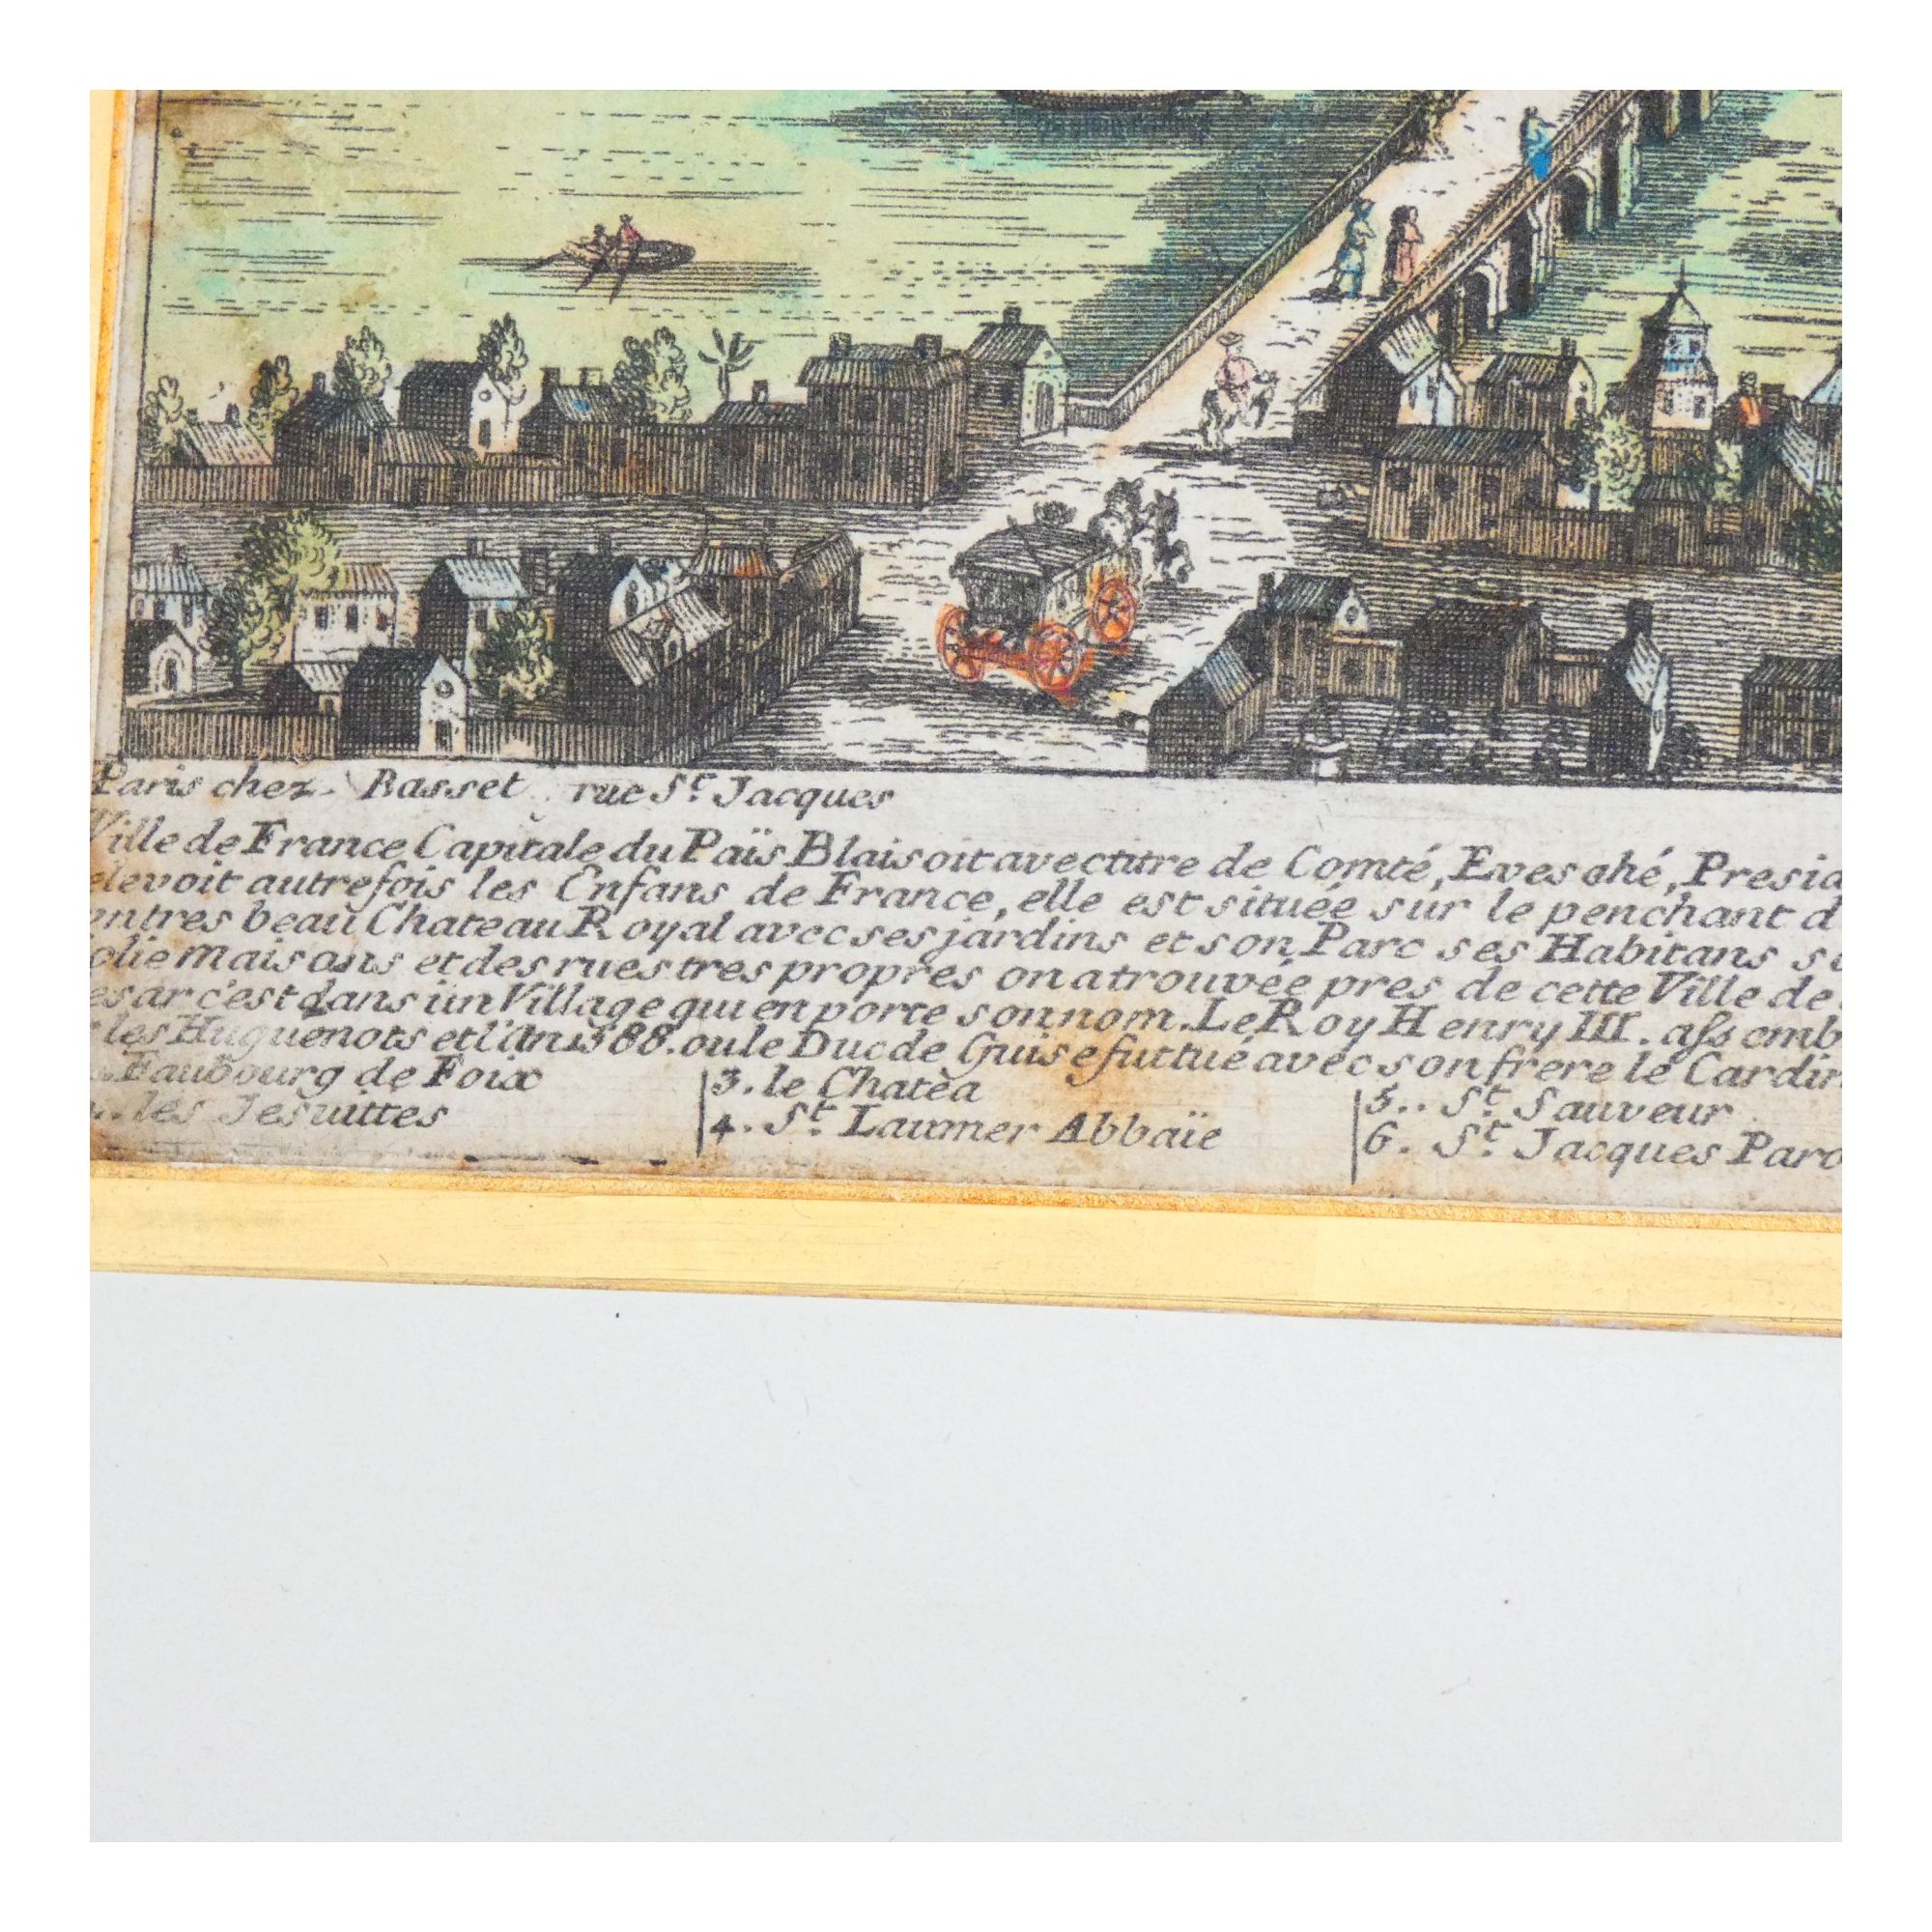 Paris chez Basset rue S.t Jacques
Ville de France Capitale du Païs Blaisoit avec titre de Comté, Evesché, Presid
elevoit autrefois les Enfans de France, elle est située sur le penchant d
entres beau Chateau Royal avec ses jardins et son Parc ses Habitans so
jolie maisons et des rues tres propres on a trouvée pres de cette Ville de
esar c'est dans un Village qui en porte son nom. Le Roy Henry III. assemb
les Huguenots et l'an 1588. ou le Duc de Guise fut tué avec son frere le Cardin
Faubourg de Foix
les Jesuittes
3. le Chatèa
4. S.t Laumer Abbaïe
5.. S.t Sauveur
6. S.t Jacques Paro